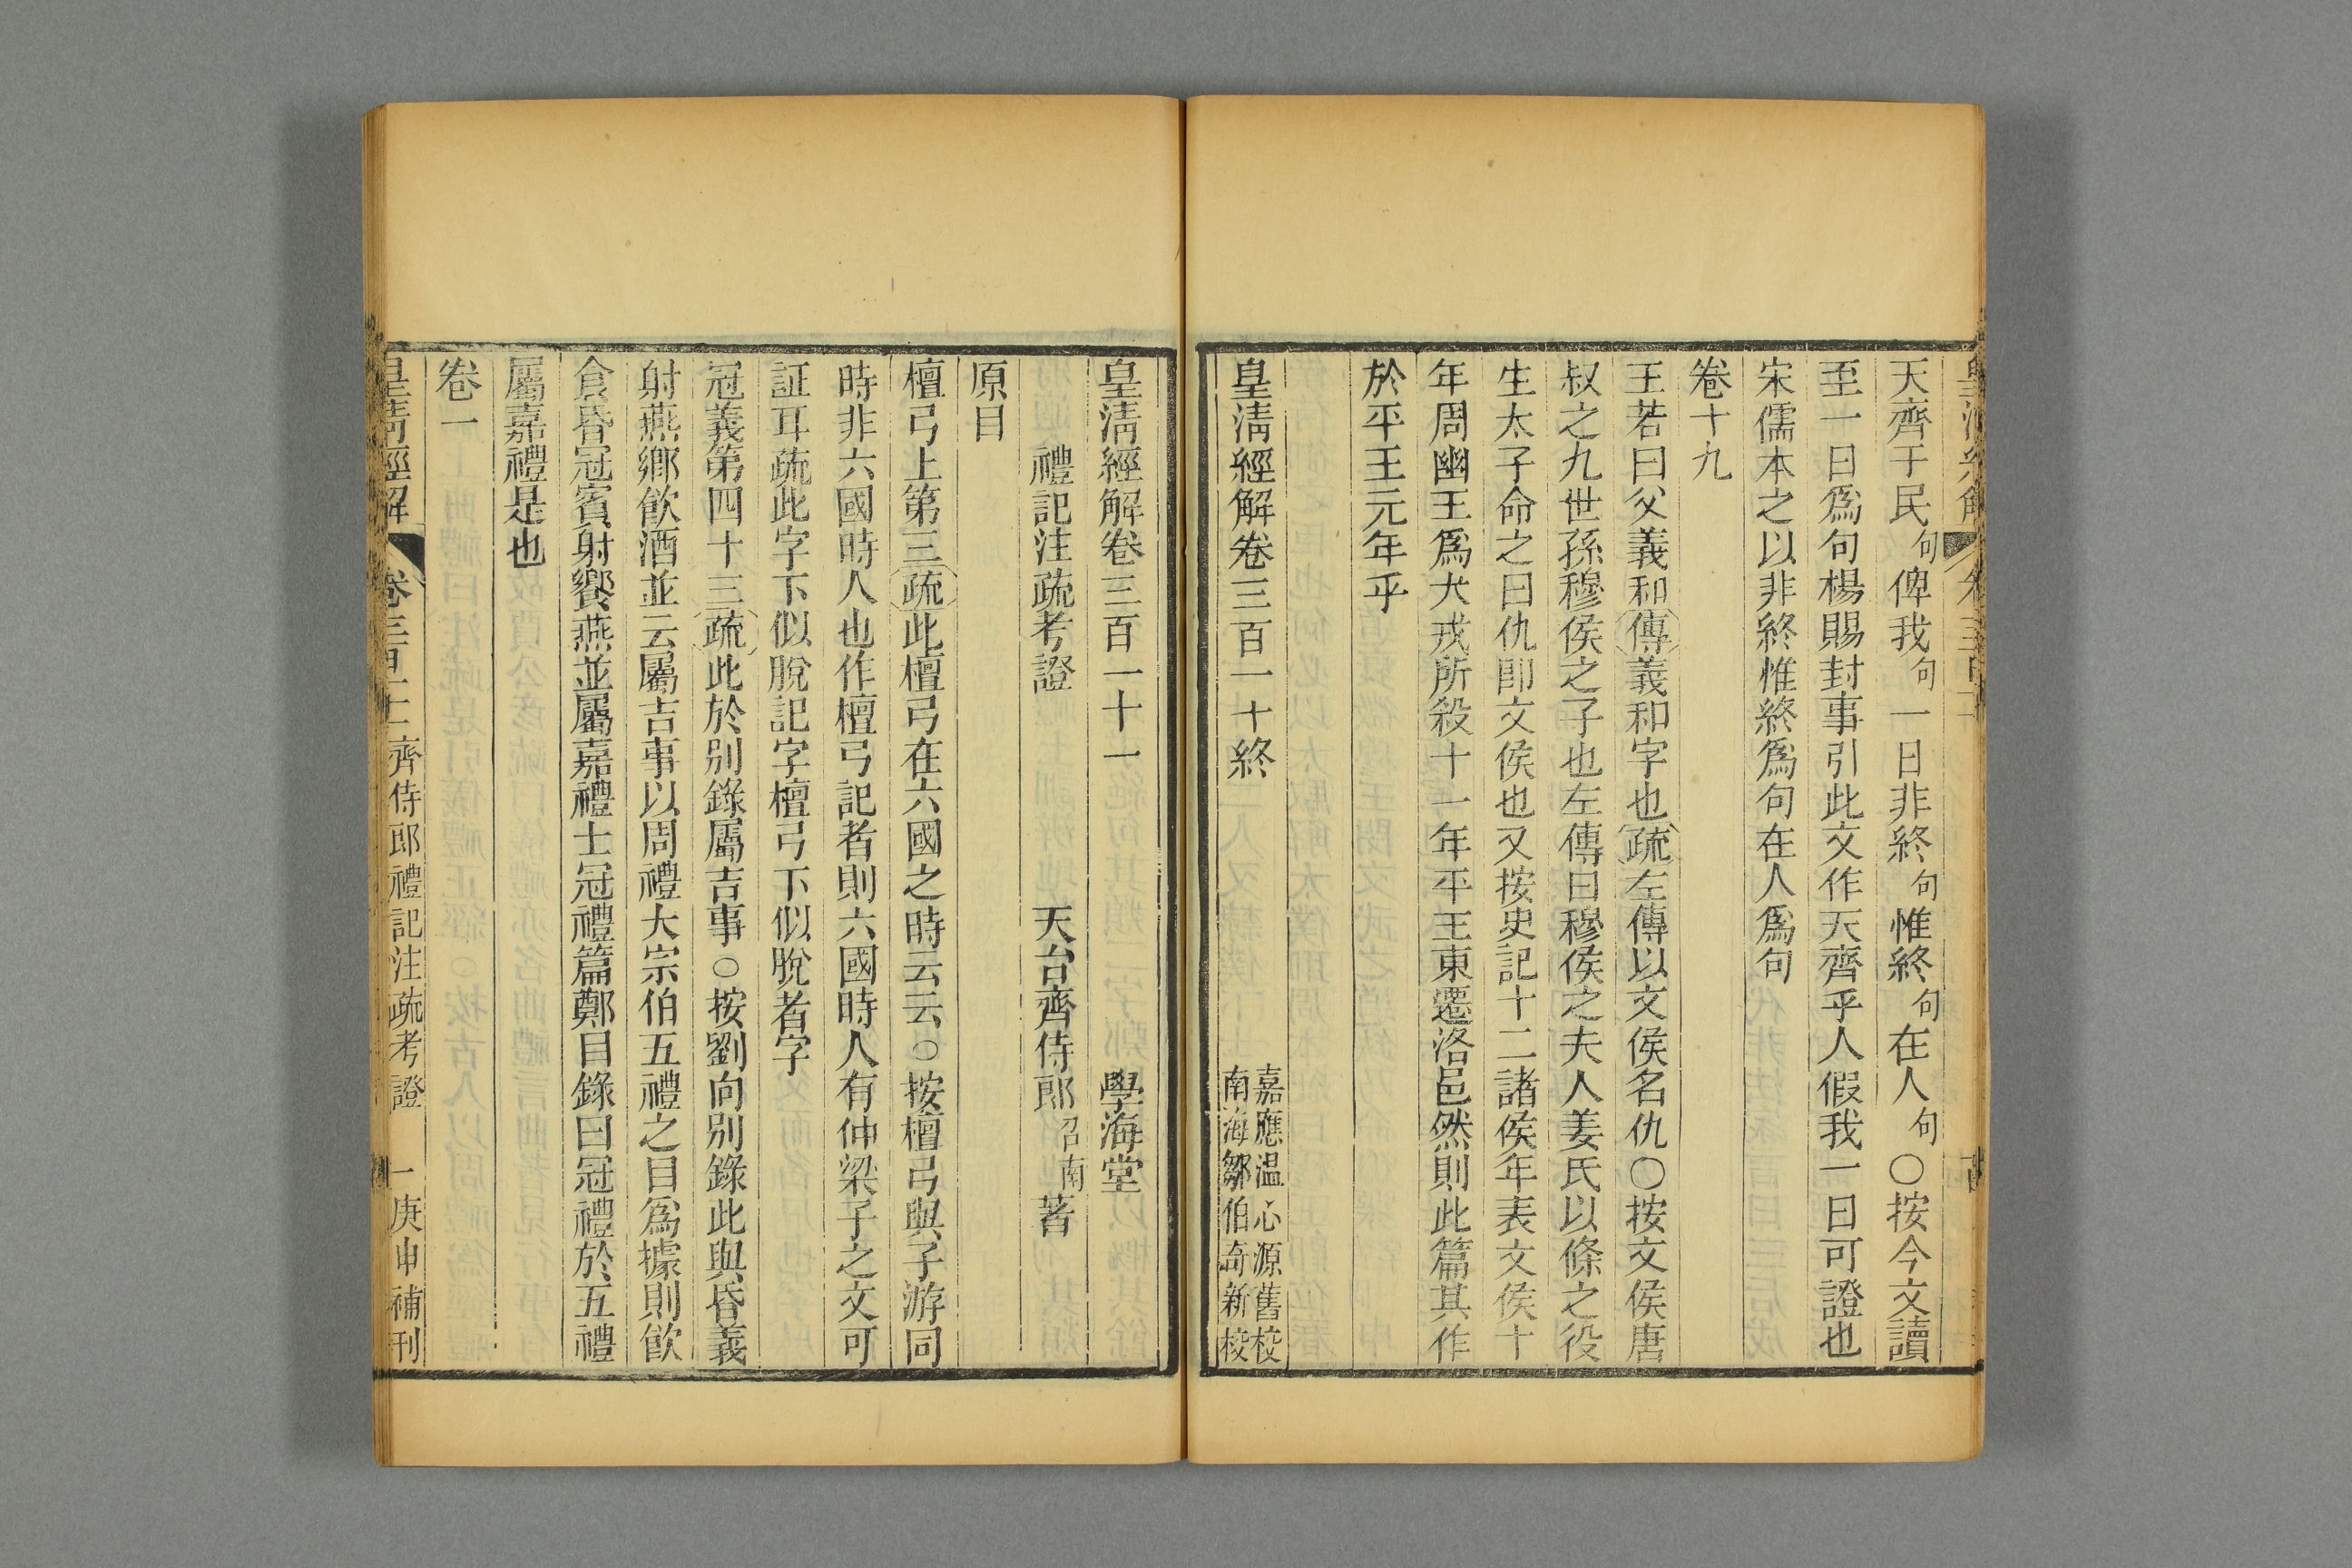 天齊于民句俾我句一日非終句惟終句在人句○按今文讀
至一日爲句楊賜封事引此文作天齊乎人假我一日可證也
宋儒本之以非終惟終爲句在人爲句
卷十九
王若曰父義和傳義和字也疏左傳以文侯名仇○按文侯唐
叔之九世孫穆侯之子也左傳曰穆侯之夫人姜氏以條之役
生太子命之曰仇卽文侯也又按史記十二諸侯年表文侯十
年周幽王爲犬戎所殺十一年平王東遷洛邑然則此篇其作
於平王元年乎
皇淸經解卷三百一十終
嘉應溫心源舊校
南海鄒伯奇新校
皇淸經解卷三百一十一 學海堂
禮記注疏考證 天台齊侍郞召南著
原目
檀弓上第三疏此檀弓在六國之時云云○按檀弓與子游同
時非六國時人也作檀弓記者則六國時人有仲梁子之文可
証耳疏此字下似脫記字檀弓下似脫者字
冠義第四十三疏此於別錄屬吉事○按劉向別錄此與昏義
射燕鄉飮酒並云屬吉事以周禮大宗伯五禮之目爲據則飮
食昏冠賓射饗燕並屬嘉禮士冠禮篇鄭目錄曰冠禮於五禮
屬嘉禮是也
卷一
皇淸經解 卷三百十一 齊侍郞禮記注疏考證 一 庚申補刊